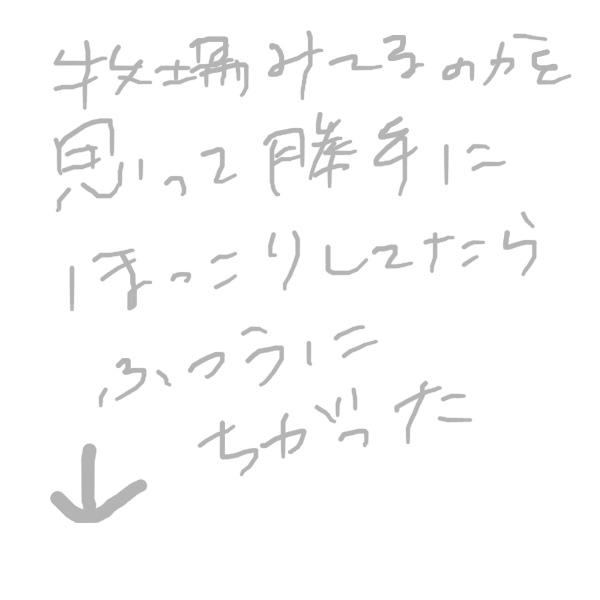 牧場みてるのかを
思って勝手に
ほっこりしてたら
ふつうに
ちがった